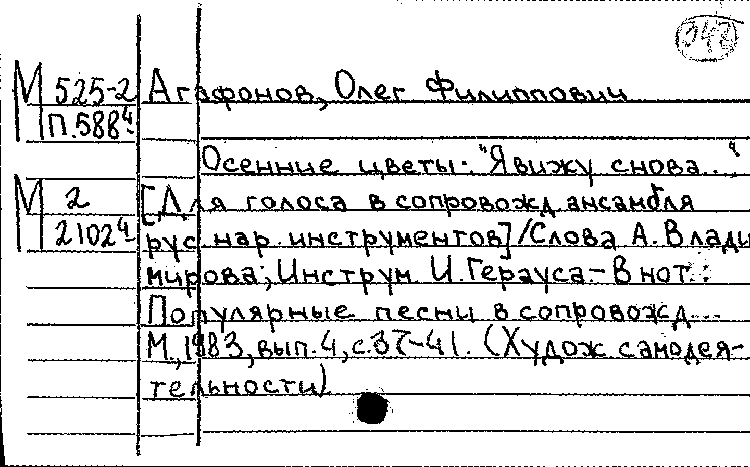 948
М 525-2 Агафонов, Олег Филиппович
П.588ч
Осенние цветы: "Я вижу снова..."
М 2 [Для голоса в сопровожд. ансамбля
2102ч рус. нар. инструментов]/Слова А. Влади
мирова; Инструм. И. Герауса.- В нот.:
Популярные песни в сопровожд...
М., 1983, вып. 4, с. 37-41. (Худож. самодея-
тельности)